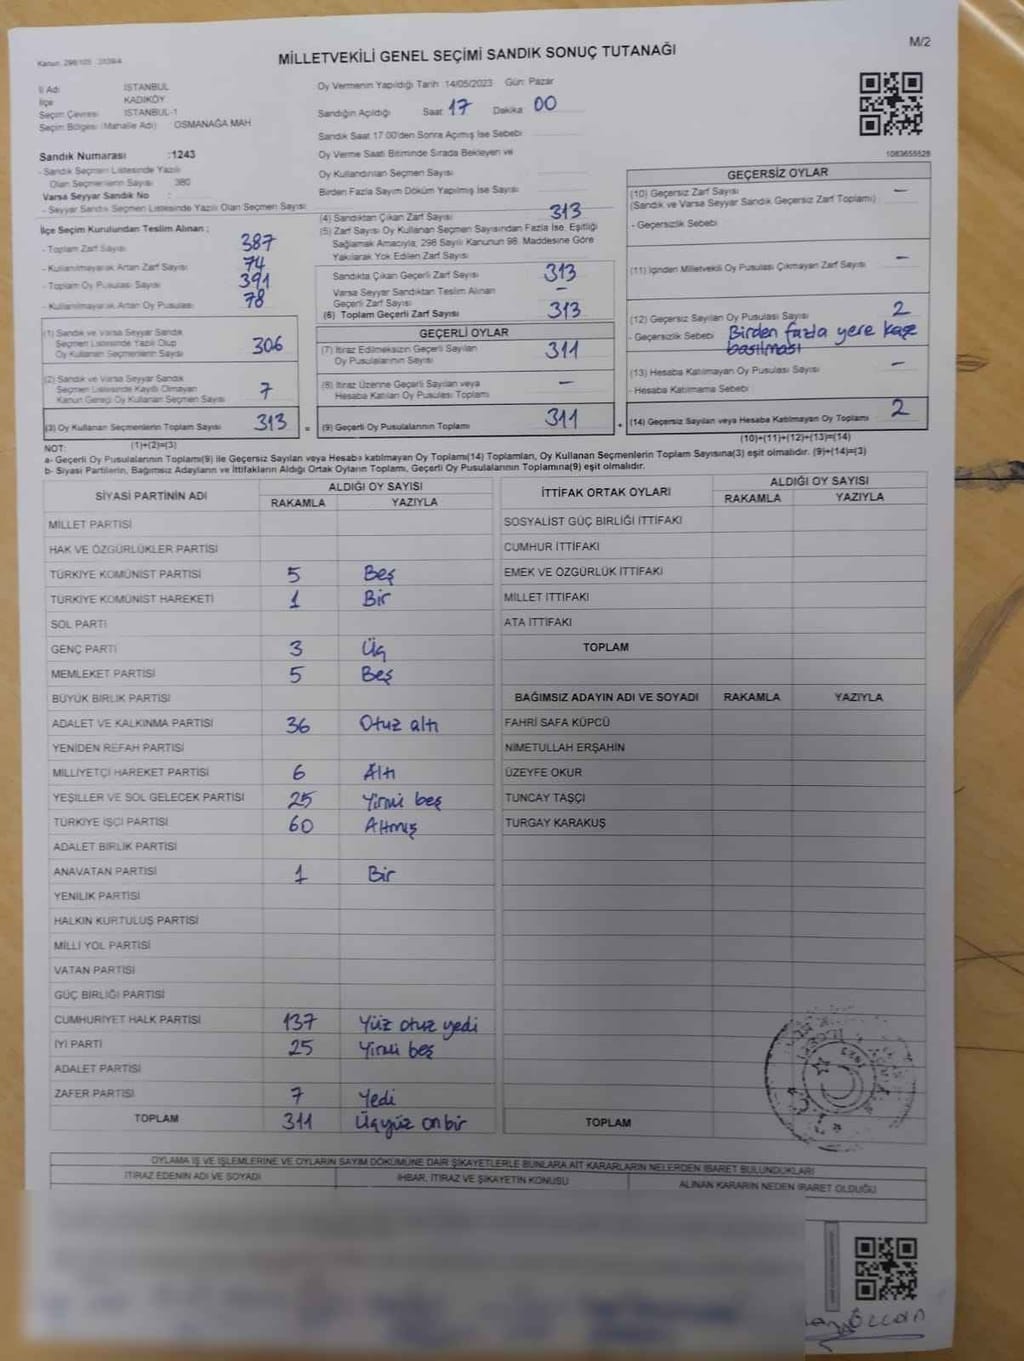 M/2
MİLLETVEKİLİ GENEL SEÇİMİ SANDIK SONUÇ TUTANAĞI
İl Adı İSTANBUL
İlçe KADIKÖY
Seçim Çevresi İSTANBUL-1
Seçim Bölgesi (Mahalle Adı) OSMANAĞA MAH
Sandık Numarası :1243
- Sandık Seçmen Listesinde Yazılı
Olan Seçmenlerin Sayısı 380
Varsa Seyyar Sandık No :
- Seyyar Sandık Seçmen Listesinde Yazılı Olan Seçmen Sayısı
İlçe Seçim Kurulundan Teslim Alınan :
- Toplam Zarf Sayısı 387
- Kullanılmayarak Artan Zarf Sayısı 74
- Toplam Oy Pusulası Sayısı 391
- Kullanılmayarak Artan Oy Pusulası 78
(1) Sandık ve Varsa Seyyar Sandık
Seçmen Listesinde Yazılı Olup
Oy Kullanan Seçmenlerin Sayısı 306
(2) Sandık ve Varsa Seyyar Sandık
Seçmen Listesinde Kayıtlı Olmayan
Kanun Gereği Oy Kullanan Seçmen Sayısı 7
(3) Oy Kullanan Seçmenlerin Toplam Sayısı 313 =
(1)+(2)=(3)
Oy Vermenin Yapıldığı Tarih :14/05/2023 Gün: Pazar
Sandığın Açıldığı Saat 17 Dakika 00
Sandık Saat 17.00'den Sonra Açılmış İse Sebebi
Oy Verme Saati Bitiminde Sırada Bekleyen ve
Oy Kullandırılan Seçmen Sayısı
Birden Fazla Sayım Döküm Yapılmış İse Sayısı
(4) Sandıktan Çıkan Zarf Sayısı 313
(5) Zarf Sayısı Oy Kullanan Seçmen Sayısından Fazla İse, Eşitliği
Sağlamak Amacıyla, 298 Sayılı Kanunun 98. Maddesine Göre
Yakılarak Yok Edilen Zarf Sayısı
Sandıkta Çıkan Geçerli Zarf Sayısı 313
Varsa Seyyar Sandıktan Teslim Alınan
Geçerli Zarf Sayısı –
(6) Toplam Geçerli Zarf Sayısı 313
GEÇERLİ OYLAR
(7) İtiraz Edilmeksizin Geçerli Sayılan
Oy Pusulalarının Sayısı 311
(8) İtiraz Üzerine Geçerli Sayılan veya
Hesaba Katılan Oy Pusulası Toplamı –
(9) Geçerli Oy Pusulalarının Toplamı 311 +
1083655528
GEÇERSİZ OYLAR
(10) Geçersiz Zarf Sayısı –
(Sandık ve Varsa Seyyar Sandık Geçersiz Zarf Toplamı)
- Geçersizlik Sebebi
(11) İçinden Milletvekili Oy Pusulası Çıkmayan Zarf Sayısı –
(12) Geçersiz Sayılan Oy Pusulası Sayısı 2
- Geçersizlik Sebebi Birden fazla yere kaşe
basılması
(13) Hesaba Katılmayan Oy Pusulası Sayısı –
- Hesaba Katılmama Sebebi
(14) Geçersiz Sayılan veya Hesaba Katılmayan Oy Toplamı 2
(10)+(11)+(12)+(13)=(14)
NOT:
a- Geçerli Oy Pusulalarının Toplamı(9) ile Geçersiz Sayılan veya Hesaba katılmayan Oy Toplamı(14) Toplamları, Oy Kullanan Seçmenlerin Toplam Sayısına(3) eşit olmalıdır. (9)+(14)=(3)
b- Siyasi Partilerin, Bağımsız Adayların ve İttifakların Aldığı Ortak Oyların Toplamı, Geçerli Oy Pusulalarının Toplamına(9) eşit olmalıdır.
SİYASİ PARTİNİN ADI ALDIĞI OY SAYISI
RAKAMLA YAZIYLA
MİLLET PARTİSİ
HAK VE ÖZGÜRLÜKLER PARTİSİ
TÜRKİYE KOMÜNİST PARTİSİ 5 Beş
TÜRKİYE KOMÜNİST HAREKETİ 1 Bir
SOL PARTİ
GENÇ PARTİ 3 Üç
MEMLEKET PARTİSİ 5 Beş
BÜYÜK BİRLİK PARTİSİ
ADALET VE KALKINMA PARTİSİ 36 Otuz altı
YENİDEN REFAH PARTİSİ
MİLLİYETÇİ HAREKET PARTİSİ 6 Altı
YEŞİLLER VE SOL GELECEK PARTİSİ 25 Yirmi beş
TÜRKİYE İŞÇİ PARTİSİ 60 Altmış
ADALET BİRLİK PARTİSİ
ANAVATAN PARTİSİ 1 Bir
YENİLİK PARTİSİ
HALKIN KURTULUŞ PARTİSİ
MİLLİ YOL PARTİSİ
VATAN PARTİSİ
GÜÇ BİRLİĞİ PARTİSİ
CUMHURİYET HALK PARTİSİ 137 Yüz otuz yedi
İYİ PARTİ 25 Yirmi beş
ADALET PARTİSİ
ZAFER PARTİSİ 7 Yedi
TOPLAM 311 Üçyüz onbir
İTTİFAK ORTAK OYLARI ALDIĞI OY SAYISI
RAKAMLA YAZIYLA
SOSYALİST GÜÇ BİRLİĞİ İTTİFAKI
CUMHUR İTTİFAKI
EMEK VE ÖZGÜRLÜK İTTİFAKI
MİLLET İTTİFAKI
ATA İTTİFAKI
TOPLAM
BAĞIMSIZ ADAYIN ADI VE SOYADI RAKAMLA YAZIYLA
FAHRİ SAFA KÜPCÜ
NİMETULLAH ERŞAHİN
ÜZEYFE OKUR
TUNCAY TAŞÇI
TURGAY KARAKUŞ
TOPLAM
OYLAMA İŞ VE İŞLEMLERİNE VE OYLARIN SAYIM DÖKÜMÜNE DAİR ŞİKAYETLERLE BUNLARA AİT KARARLARIN NELERDEN İBARET BULUNDUKLARI
İTİRAZ EDENİN ADI VE SOYADI İHBAR, İTİRAZ VE ŞİKAYETİN KONUSU ALINAN KARARIN NEDEN İBARET OLDUĞU